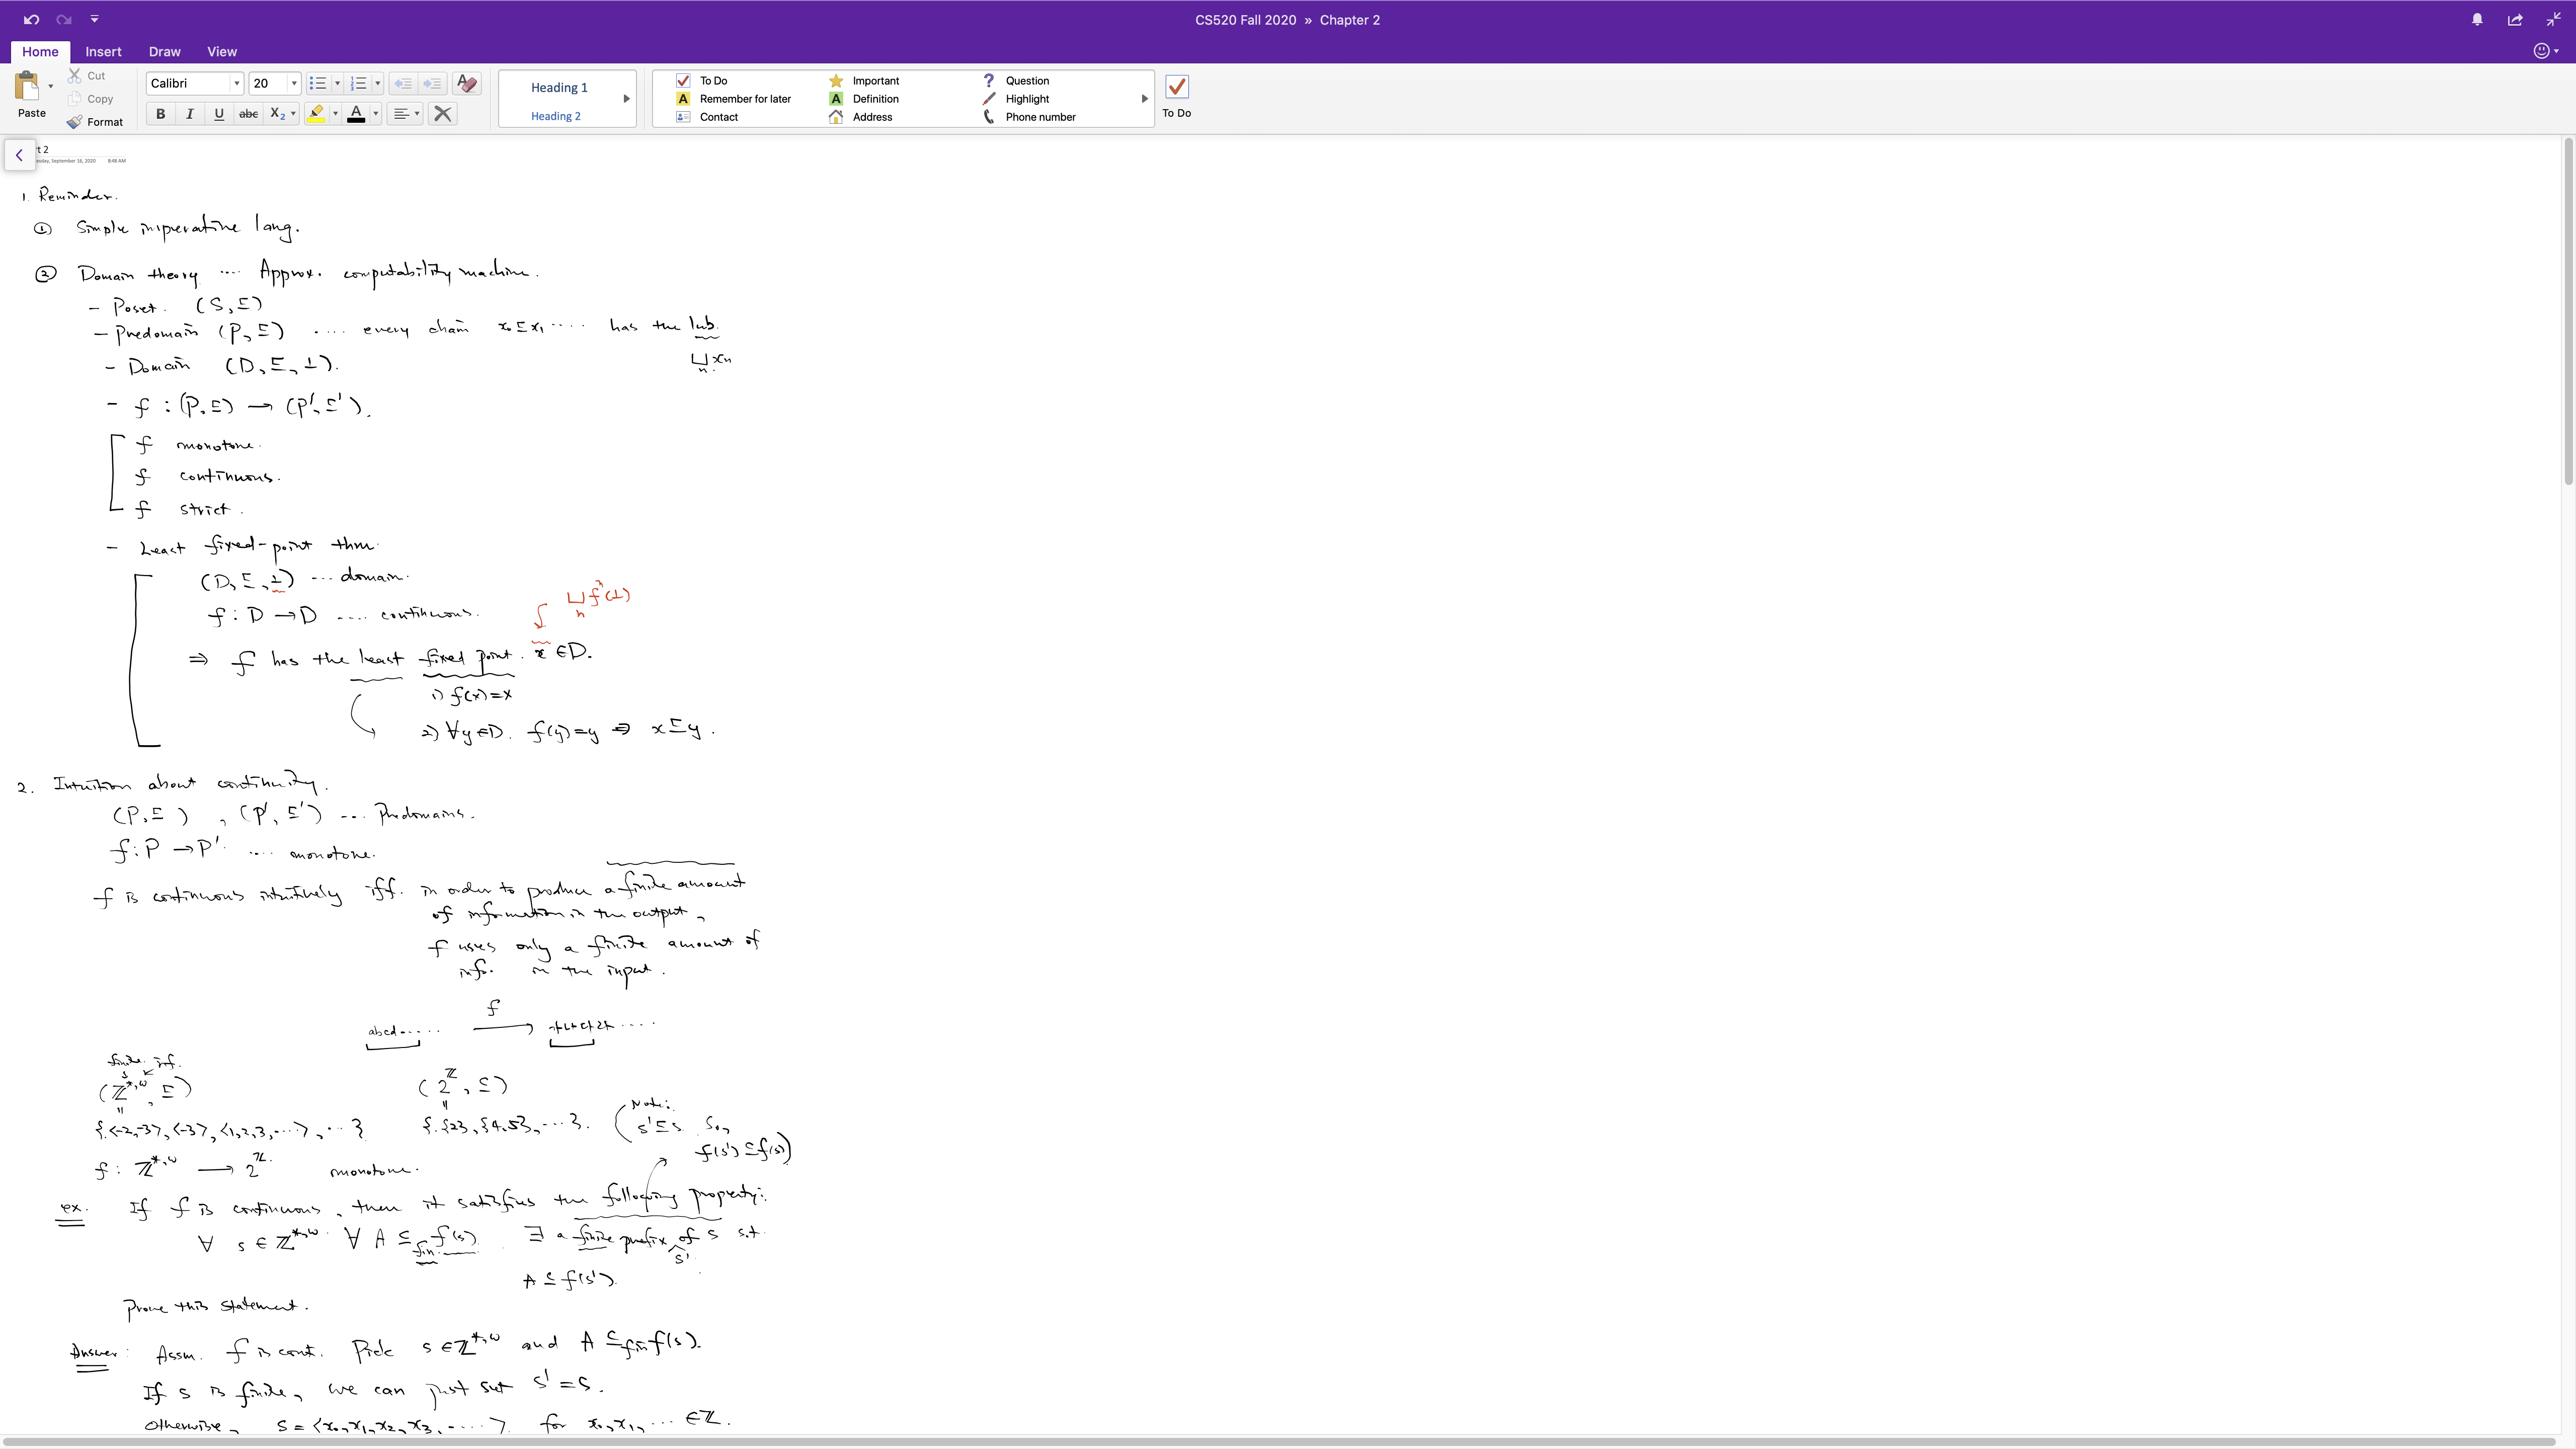 CS520 Fall 2020 » Chapter 2
Home Insert Draw View
Paste
Cut
Copy
Format
Calibri 20
B I U abc X₂ A
Heading 1
Heading 2
To Do Important Question
Remember for later Definition Highlight
Contact Address Phone number
To Do
rt 2
esday, September 16, 2020 8:48 AM
1. Reminder.
① Simple imperative lang.
② Domain theory .... Approx. computability machine.
- Poset. (S, ⊑)
- Predomain (P, ⊑) .... every chain x₀ ⊑ x₁ .... has the lub.
⊔ₙ xₙ
- Domain (D, ⊑, ⊥).
- f : (P, ⊑) → (P', ⊑').
f monotone.
f continuous.
f strict.
- Least fixed-point thm.
(D, ⊑, ⊥) ... domain.
f : D → D .... continuous.
⊔ₙ fⁿ(⊥)
⇒ f has the least fixed point. x ∈ D.
1) f(x) = x
2) ∀y ∈ D. f(y) = y ⇒ x ⊑ y.
2. Intuition about continuity.
(P, ⊑), (P', ⊑') ... Predomains.
f : P → P' .... monotone.
f is continuous intuitively iff. in order to produce a finite amount
of information in the output,
f uses only a finite amount of
info. in the input.
f
abcd.... →
finite inf.
(ℤ*,ω, ⊑) (2^ℤ, ⊆)
{<-2,-3>, <-3>, <1,2,3,...>, ...} {{2}, {4,5}, ...}.
(Note:
s' ⊑ s. So,
f(s') ⊆ f(s))
f : ℤ*,ω → 2^ℤ. monotone.
ex. If f is continuous, then it satisfies the following property:
∀ s ∈ ℤ*,ω. ∀ A ⊆fin f(s) ∃ a finite prefix of s s.t.
s'
A ⊆ f(s').
Prove this statement.
Answer: Assm. f is cont. Pick s ∈ ℤ*,ω and A ⊆fin f(s).
If s is finite, we can just set s' = s.
Otherwise, s = <x₀, x₁, x₂, x₃, .....> for x₀, x₁, ... ∈ ℤ.